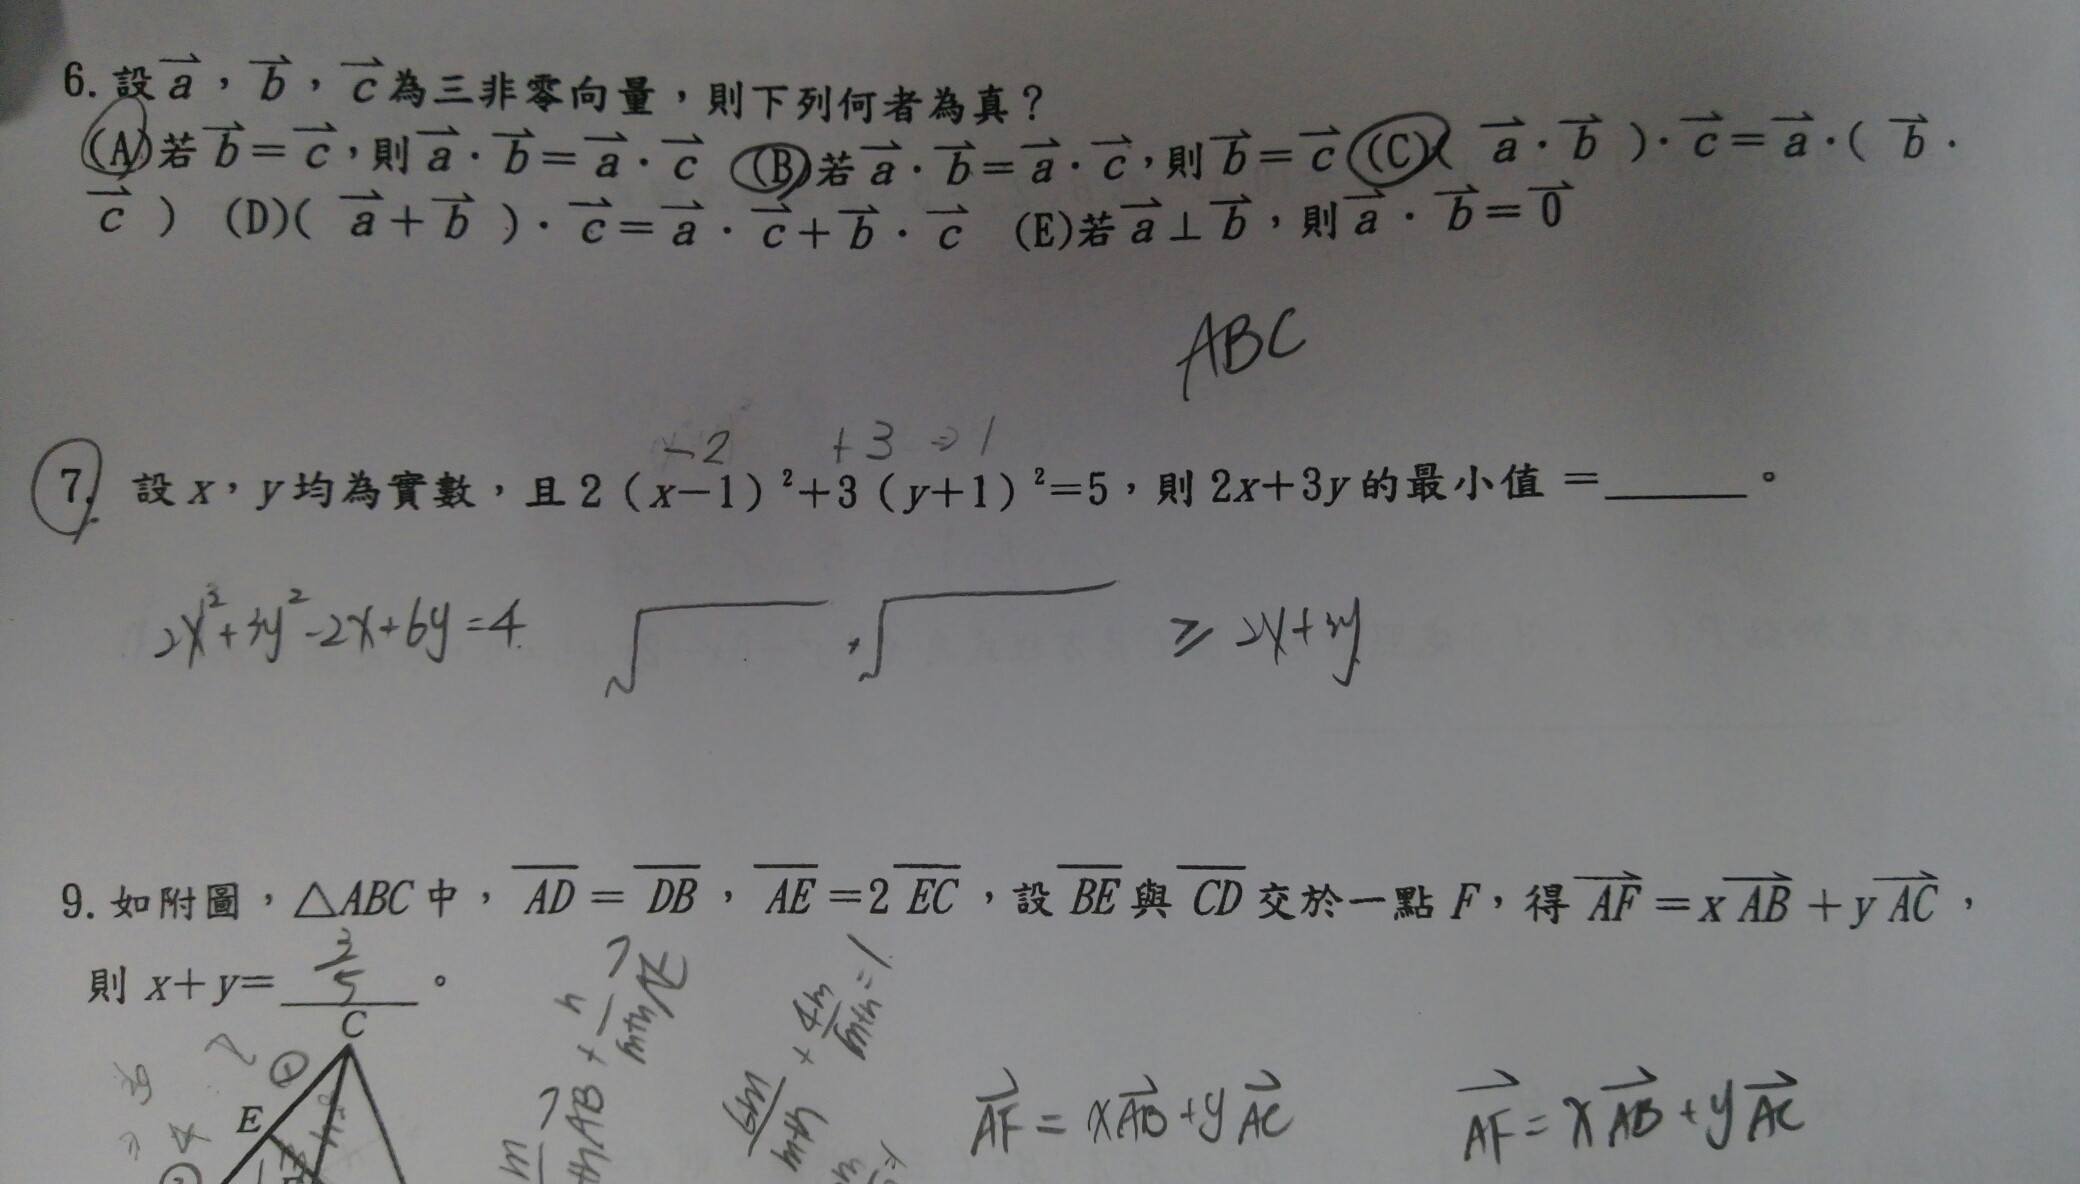 6. 設 a，b，c 為三非零向量，則下列何者為真？
(A)若 b = c，則 a · b = a · c (B)若 a · b = a · c，則 b = c (C)( a · b )· c = a ·( b ·
c ) (D)( a + b )· c = a · c + b · c (E)若 a ⊥ b，則 a · b = 0
ABC
-2 +3 ⇒1
7. 設 x，y 均為實數，且 2（x−1）²+3（y+1）²=5，則 2x+3y 的最小值 =______。
2x²+3y²-2x+6y=4 ≥ 2x+3y
9. 如附圖，△ABC 中，AD = DB，AE =2 EC，設 BE 與 CD 交於一點 F，得 AF = x AB + y AC，
則 x+y= 3/5 。
C
E
AF = xAB + yAC
AF = xAB + yAC